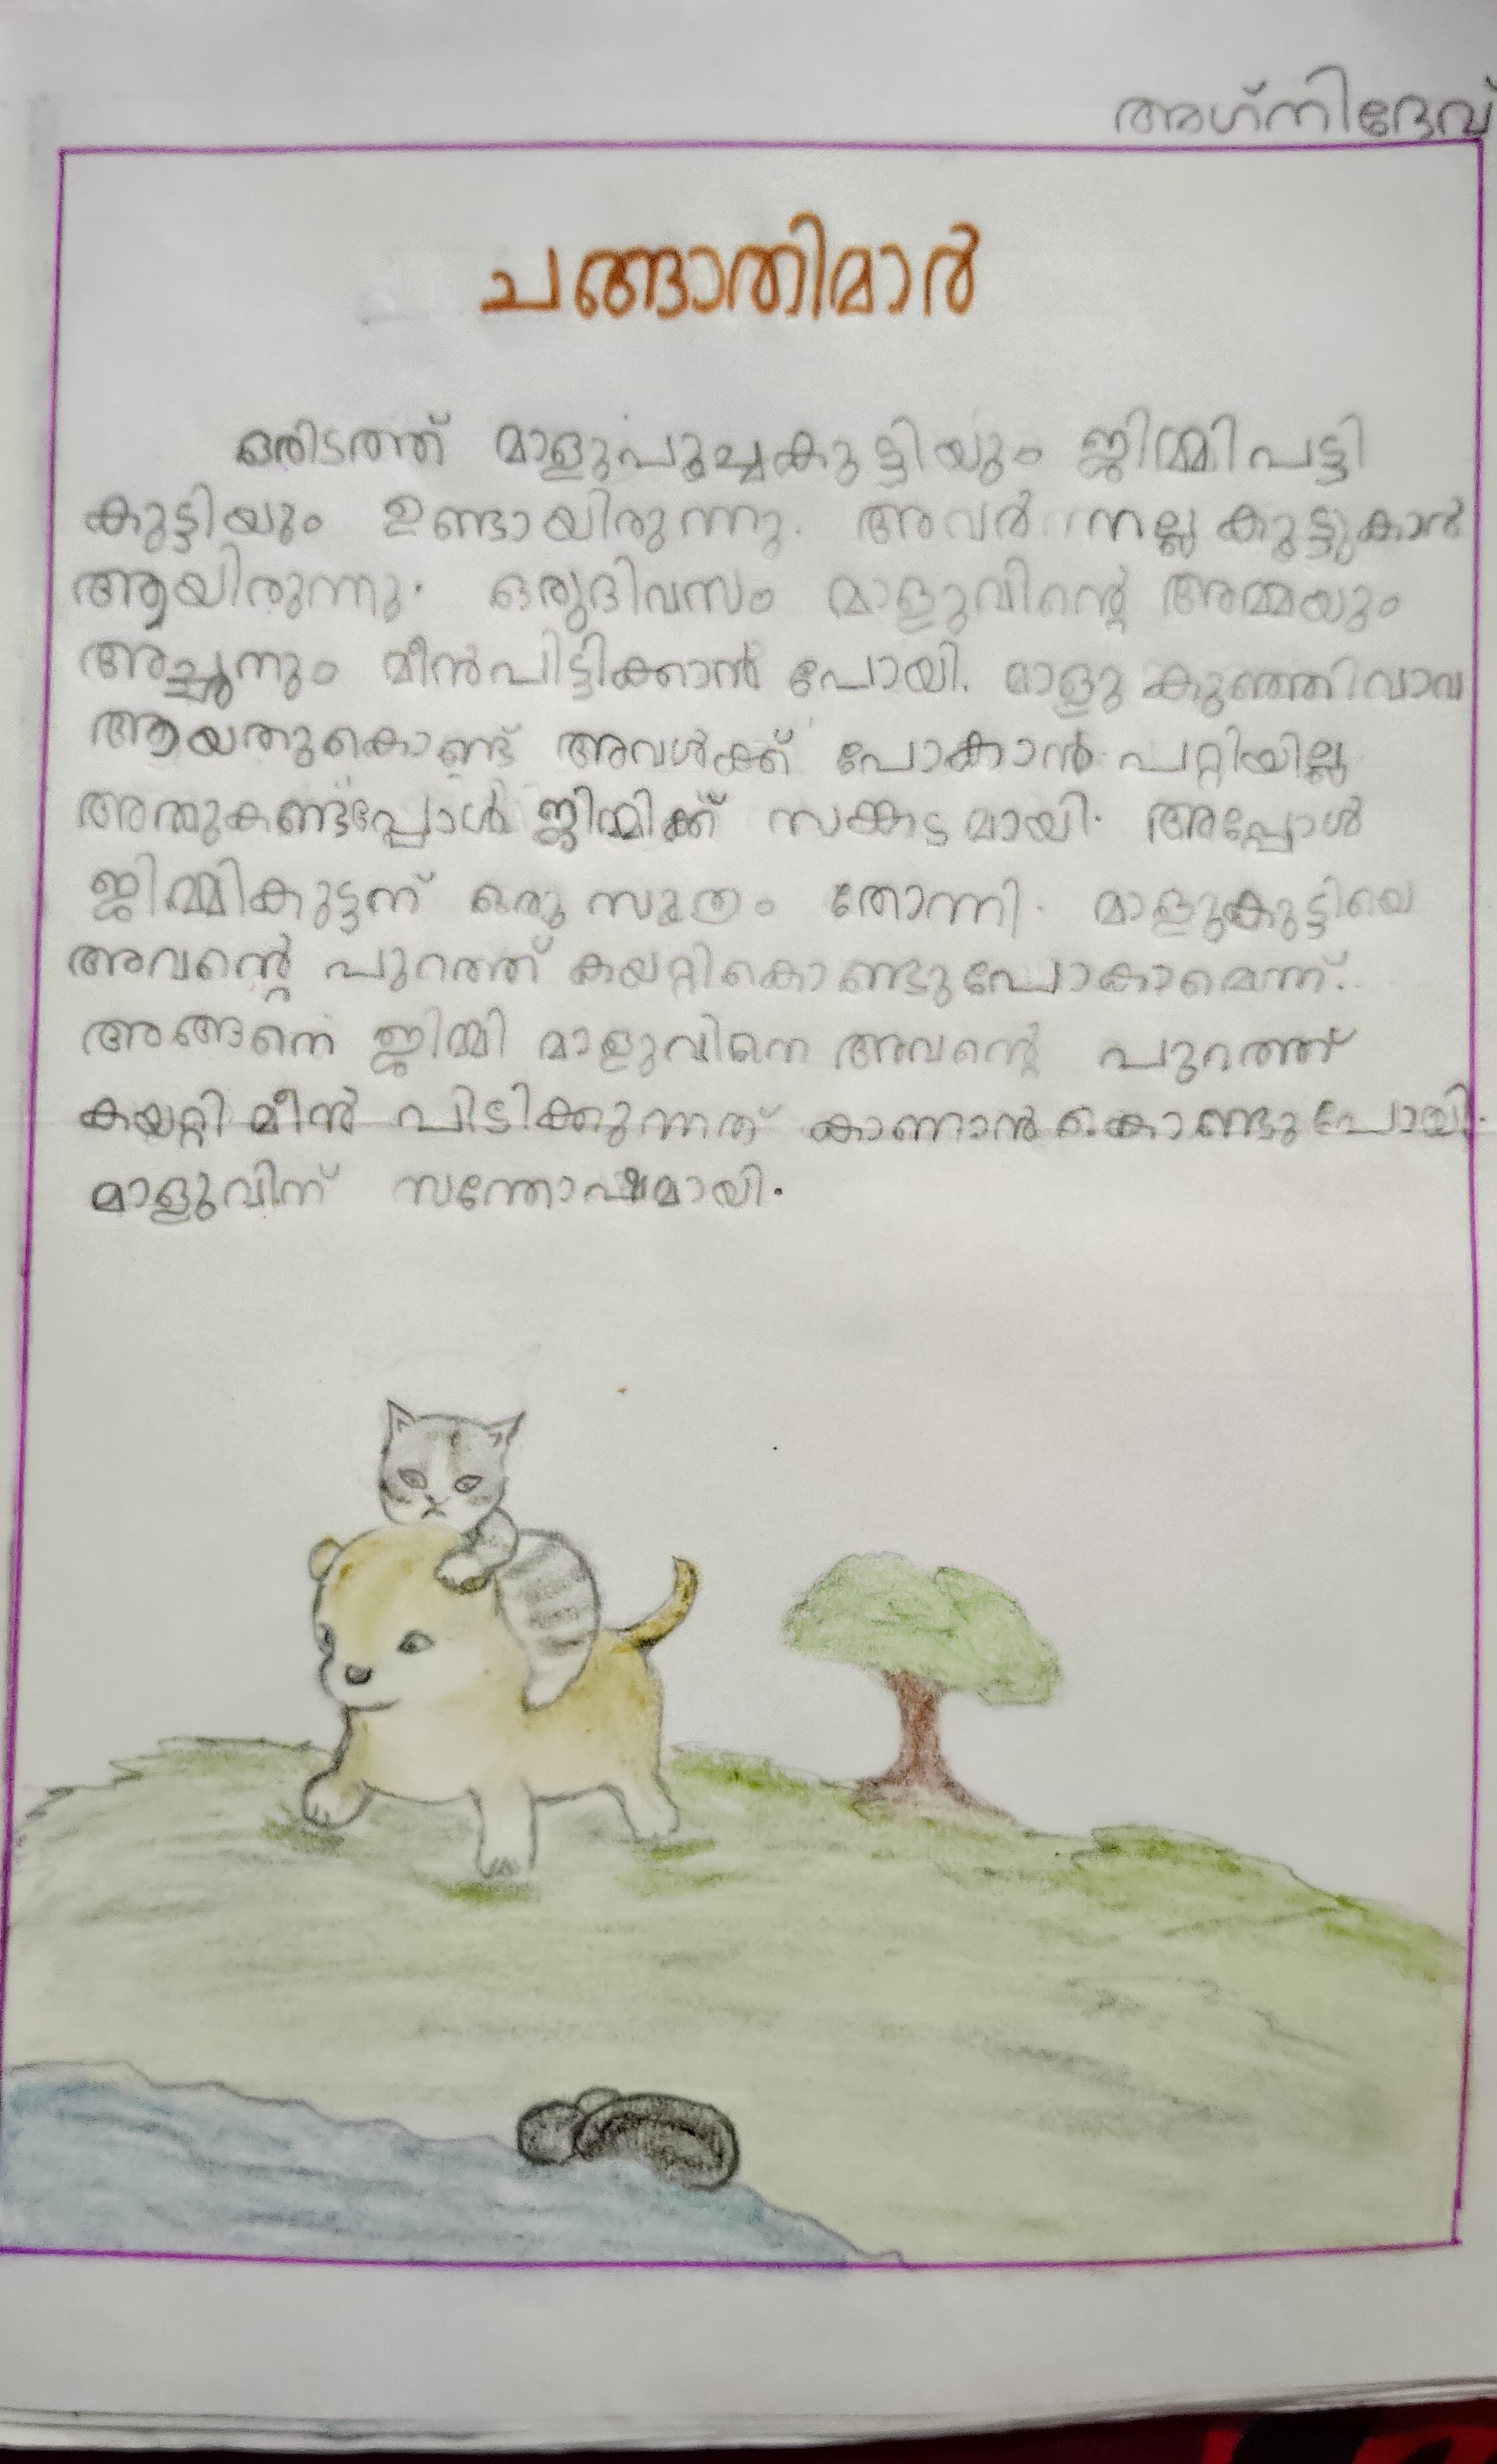 അഗ്നിദേവ്
ചങ്ങാതിമാർ
ഒരിടത്ത് മാളുപൂച്ചകുട്ടിയും ജിമ്മിപട്ടി
കുട്ടിയും ഉണ്ടായിരുന്നു. അവർ നല്ല കുട്ടുകാർ
ആയിരുന്നു. ഒരുദിവസം മാളുവിന്റെ അമ്മയും
അച്ഛനും മീൻപിട്ടിക്കാൻ പോയി. മാളു കുഞ്ഞിവാവ
ആയതുകൊണ്ട് അവൾക്ക് പോകാൻ പറ്റിയില്ല
അതുകണ്ടപ്പോൾ ജിമ്മിക്ക് സങ്കടമായി. അപ്പോൾ
ജിമ്മികുട്ടന് ഒരു സൂത്രം തോന്നി. മാളുകുട്ടിയെ
അവന്റെ പുറത്ത് കയറ്റികൊണ്ടുപോകാമെന്ന്.
അങ്ങനെ ജിമ്മി മാളുവിനെ അവന്റെ പുറത്ത്
കയറ്റി മീൻ പിടിക്കുന്നത് കാണാൻ കൊണ്ടുപോയി.
മാളുവിന് സന്തോഷമായി.